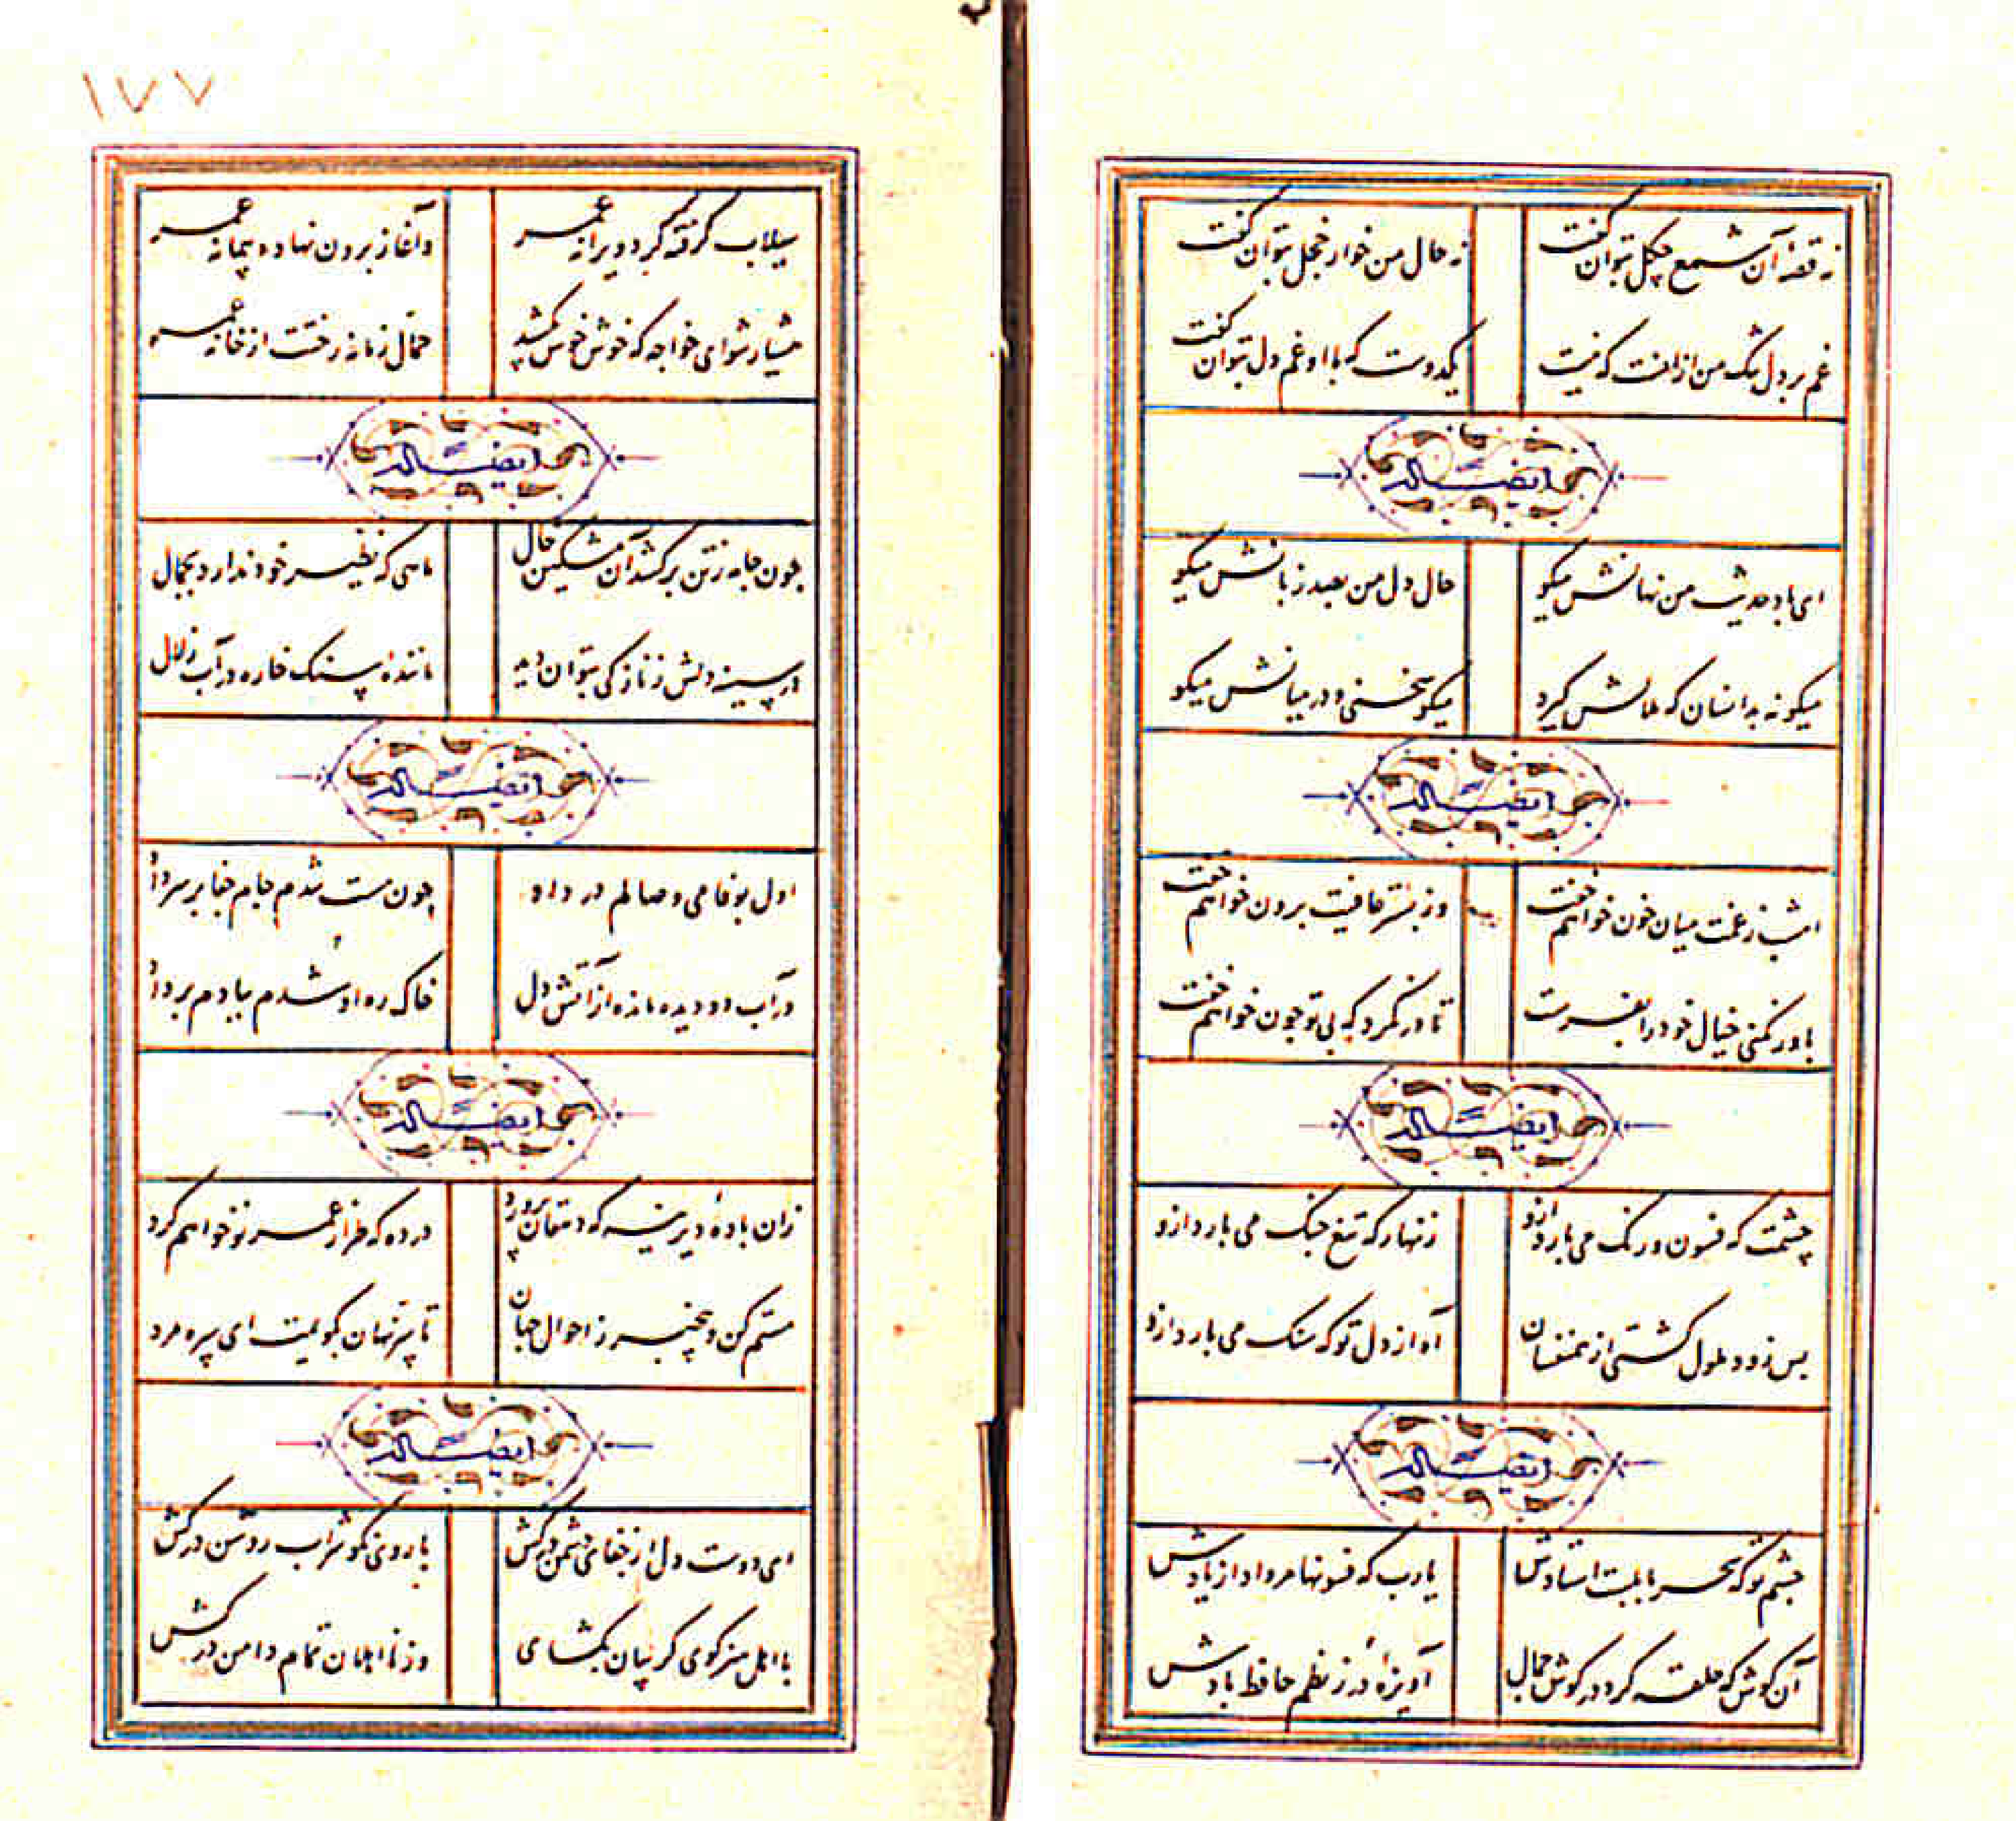 نه قصهٔ آن شمع چگل بتوان گفت
نه حال من خوار خجل بتوان گفت
غم بر دل تنک من از آنست که نیست
یکدوست که با او غم دل بتوان گفت
ایضاً له
ای باد حدیث من نهانش میکو
حال دل من بصد زبانش میکو
میکو نه بدانسان که ملالش کیرد
میکو سخنی و در میانش میکو
ایضاً له
امشب ز غمت میان خون خواهم خفت
وز بستر عافیت برون خواهم خفت
باور نکنی خیال خود را بفرست
تا در نکرد که بی تو چون خواهم خفت
ایضاً له
چشمت که فسون و رنک می بارد ازو
زنهار که تیغ جنک می بارد ازو
بس زود ملول کشتی از همنفسان
آه از دل تو که سنک می بارد ازو
ایضاً له
چشم تو که سحر بابلست استادش
یا رب که فسونها مرواد از یادش
آن کوش که حلقه کرد در کوش جمال
آویزهٔ در ز نظم حافظ بادش
١٧٧
سیلاب کرفته کرد ویرانه عمر
وآغاز بر دون نهاد پیمانه عمر
هشیار شو ای خواجه که خوش خوش بکشد
حمّال زمانه رخت از خانه عمر
ایضاً له
چون جامه ز تن برکشد آن مشکین خال
ماهی که نظیر خود ندارد بجمال
در سینه دلش ز نازکی بتوان دید
ماننده سنک خاره در آب زلال
ایضاً له
اول بوفا می وصالم در داد
چون مست شدم جام جفا بر سر داد
در آب دو دیده مانده از آتش دل
خاک ره او شدم ببادم بر داد
ایضاً له
زان بادهٔ دیرینه که دهقان پرورد
در ده که طراز عمر نو خواهم کرد
مستم کن و بیخبر ز احوال جهان
تا سر جهان بکویمت ای سره مرد
ایضاً له
ای دوست دل از جفای دشمن درکش
با روی نکو شراب روشن درکش
با اهل هنر کوی کریبان بکشای
وز نااهلان تمام دامن درکش